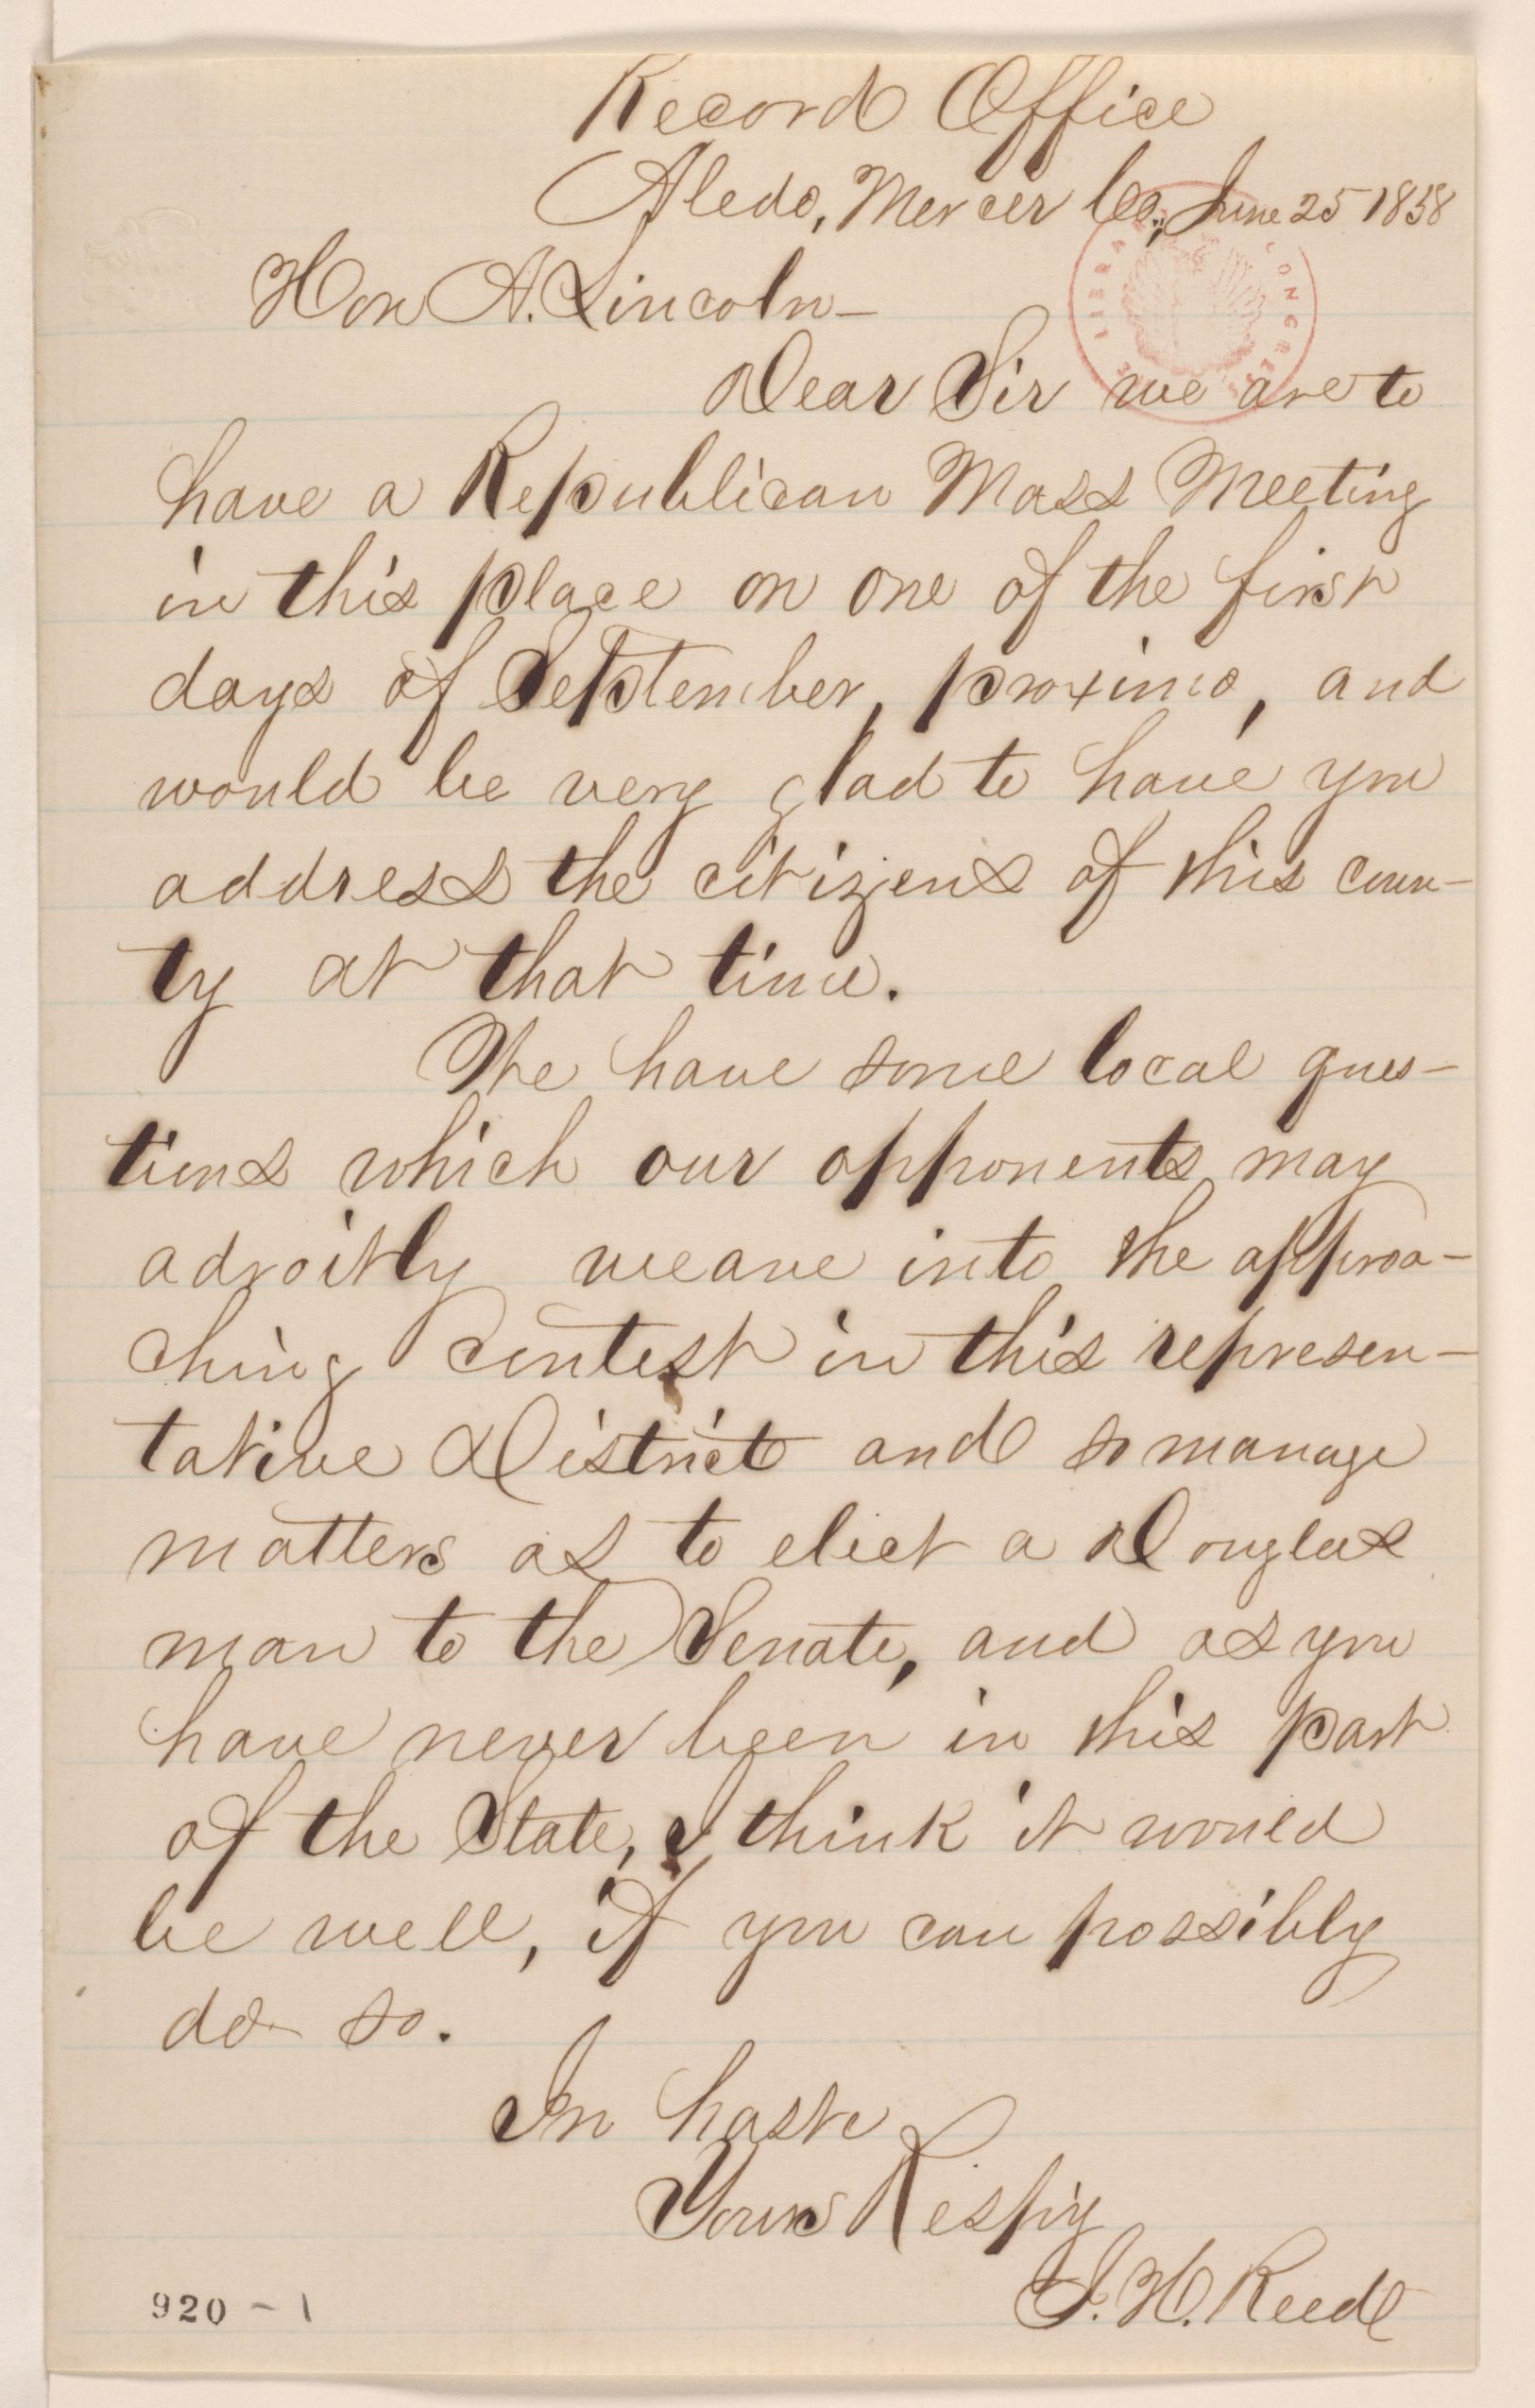 Record Office
Aledo, Mercer Co., June 25 1858
Hon A. Lincoln—
Dear Sir we are to
have a Republican Mass Meeting
in this place on one of the first
days of September, proximo, and
would be very glad to have you
address the citizens of this coun-
ty at that time.
We have some local ques-
tions which our opponents may
adroitly weave into the approa-
ching contest in this represen-
tative District and so manage
matters as to elect a Douglas
man to the Senate, and as you
have never been in this part
of the State, I think it would
be well, if you can possibly
do so.
In haste
Yours Respy
J. H. Reed
920 - 1